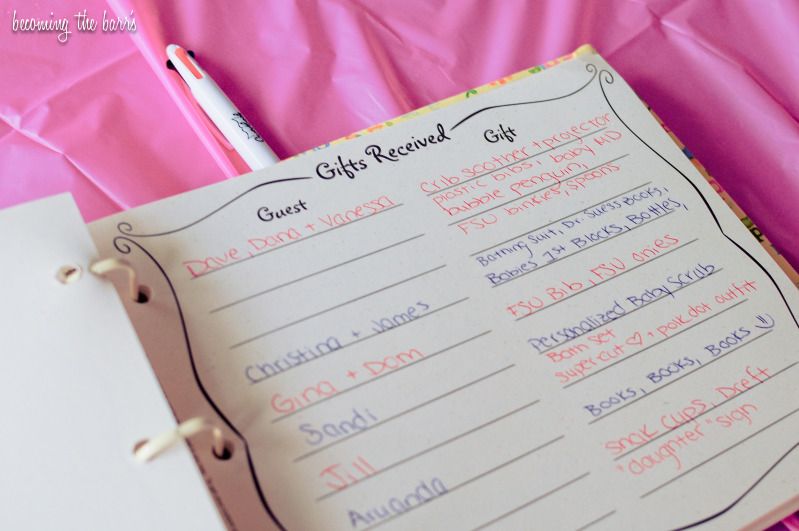 becoming the barr's
Gifts Received
Guest Gift
Dave, Dana + Vanessa
Crib soother + projector
plastic bibs, baby MD
bubble penguin,
FSU binkies, spoons
Christina + James
Bathing Suit, Dr. Suess Books,
Babies 1st Blocks, Bottles,
Gina + Dom
FSU Bib, FSU onies
Sandi
Personalized Baby Scrub
Barn set
Jill
super cut ♡ + polkdot outfit
Books, Books, Books
Amanda
snak cups, Dreft
"daughter" sign